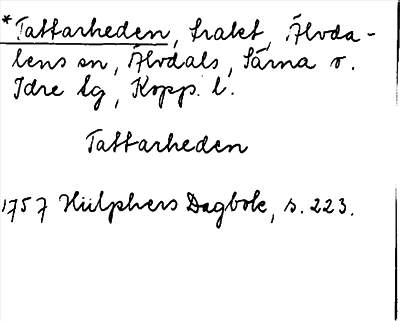 *Tattarheden, trakt, Älvda-
lens sn, Älvdals, Särna o.
Idre lg, Kopp. l.
Tattarheden
1757 Hülphers Dagbok, s. 223.